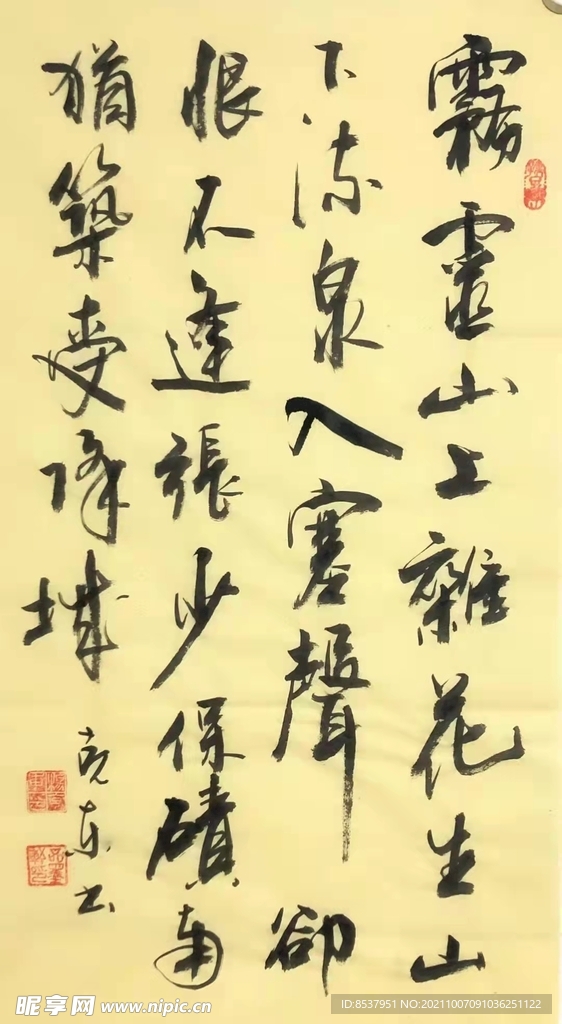 霧靈山上雜花生山
下流泉入塞聲卻
恨不逢張少保磧南
猶築受降城
東書
昵享网 www.nipic.cn
ID:8537951 NO:20211007091036251122